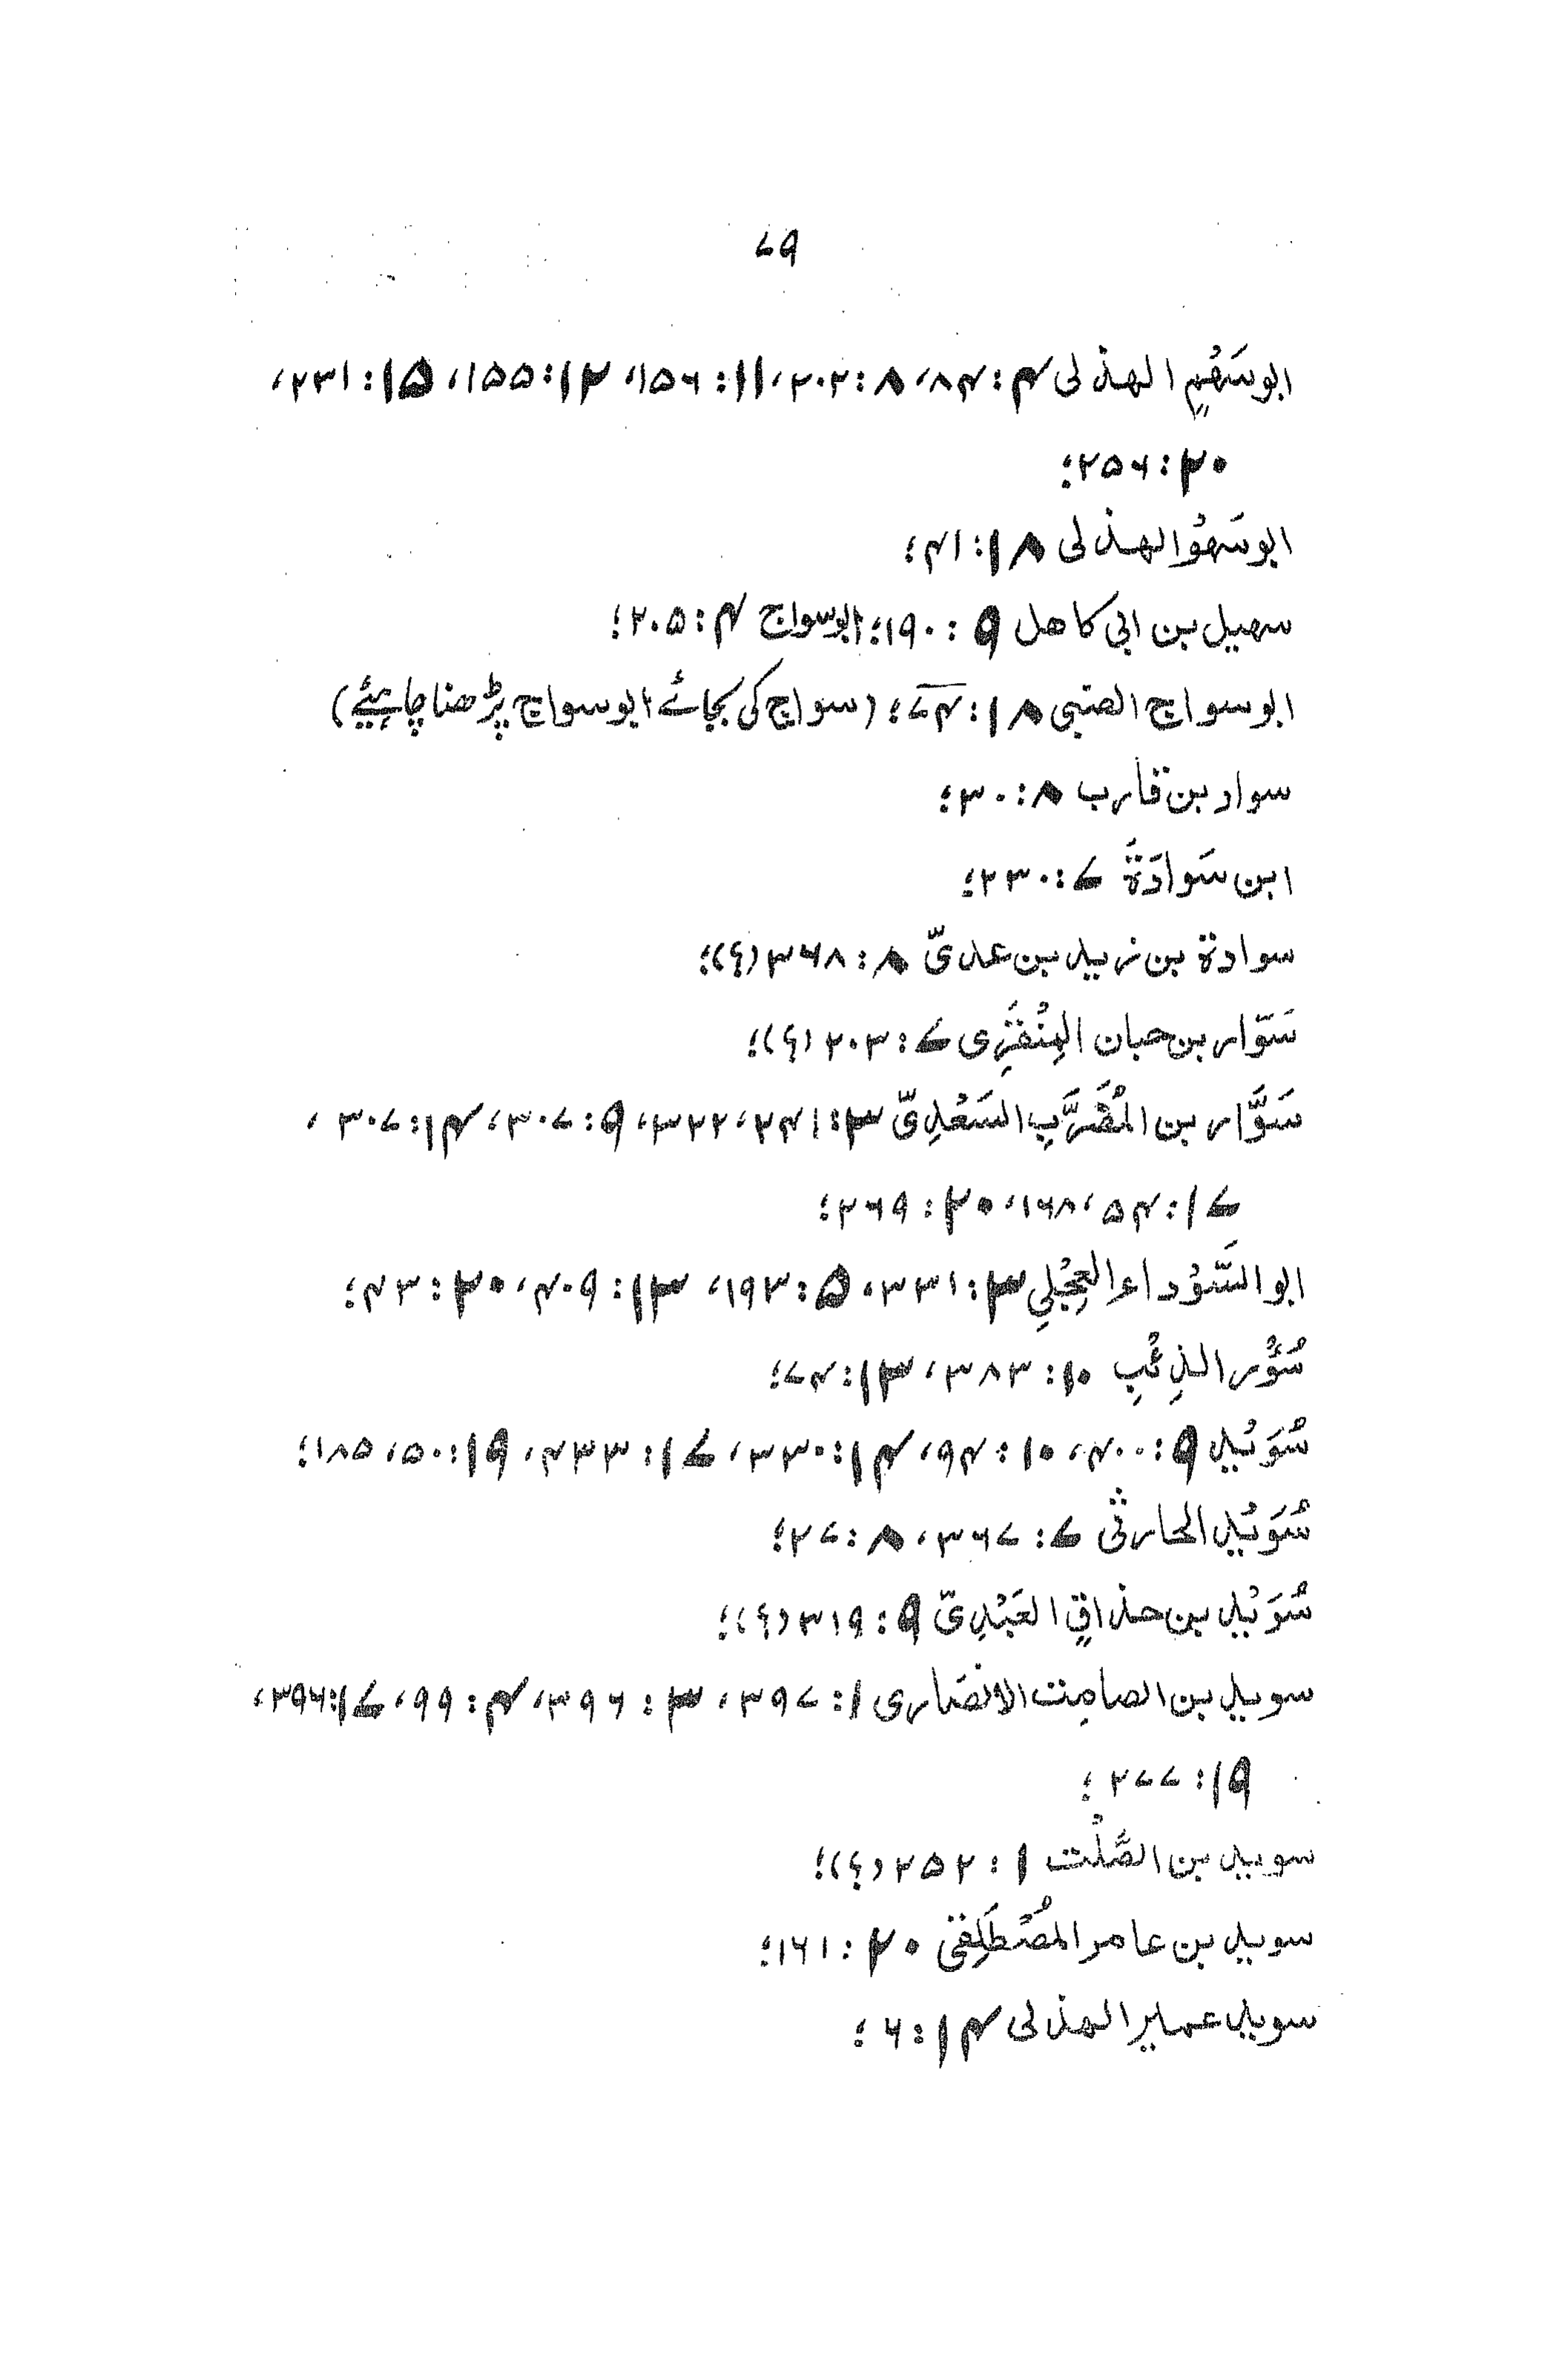 ۷۹
ابو سَهْمٍ الهذلی ۴: ۸۴، ۸: ۲۰۲، ۱۱: ۱۵۶، ۱۲: ۱۵۵، ۱۵: ۲۳۱،
۲۰: ۲۵۶؛
ابو سَهْوُ الهذلی ۱۸: ۴۱؛
سهیل بن ابی کاهل ۹: ۱۹۰؛ ابو سواج ۴: ۲۰۵؛
ابو سواج الضبی ۱۸: ۷۴؛ (سواج کی بجائے ابو سواج پڑھنا چاہیئے)
سواد بن قارب ۸: ۳۰؛
ابن سَوادَةَ ۷: ۲۳۰؛
سوادة بن زید بن عدیّ ۸: ۳۶۸ (؟)؛
سَوّار بن حبان المِنْقَرِی ۷: ۲۰۳ (؟)؛
سَوَّار بن المُضَرَّبِ السَعْدِیّ ۳: ۲۴۱، ۳۲۲، ۹: ۳۰۷، ۱۴: ۳۰۷،
۱۷: ۵۴، ۱۶۸، ۲۰: ۲۶۹؛
ابو السَّوْداء العِجْلِی ۳: ۳۳۱، ۵: ۱۹۲، ۱۳: ۴۰۹، ۲۰: ۴۳؛
سُؤْر الذِئْبِ ۱۰: ۳۸۳، ۱۳: ۷۴؛
سُوَیْد ۹: ۴۰۰، ۱۰: ۹۴، ۱۴: ۳۳۰، ۱۷: ۴۳۳، ۱۹: ۵۰، ۱۸۵؛
سُوَیْد الحارثی ۷: ۳۶۷، ۸: ۲۷؛
سُوَیْد بن حذاقٍ العَبْدِیّ ۹: ۳۱۹ (؟)؛
سوید بن الصامِت الانصَاری ۱: ۳۹۷، ۳: ۳۹۶، ۴: ۹۹، ۱۷: ۳۹۶،
۱۹: ۲۷۷؛
سوید بن الصَّلْت ۱: ۲۵۲ (؟)؛
سوید بن عامر المُصْطَلِقی ۲۰: ۱۶۱؛
سوید عمایر الهذلی ۱۴: ۶؛